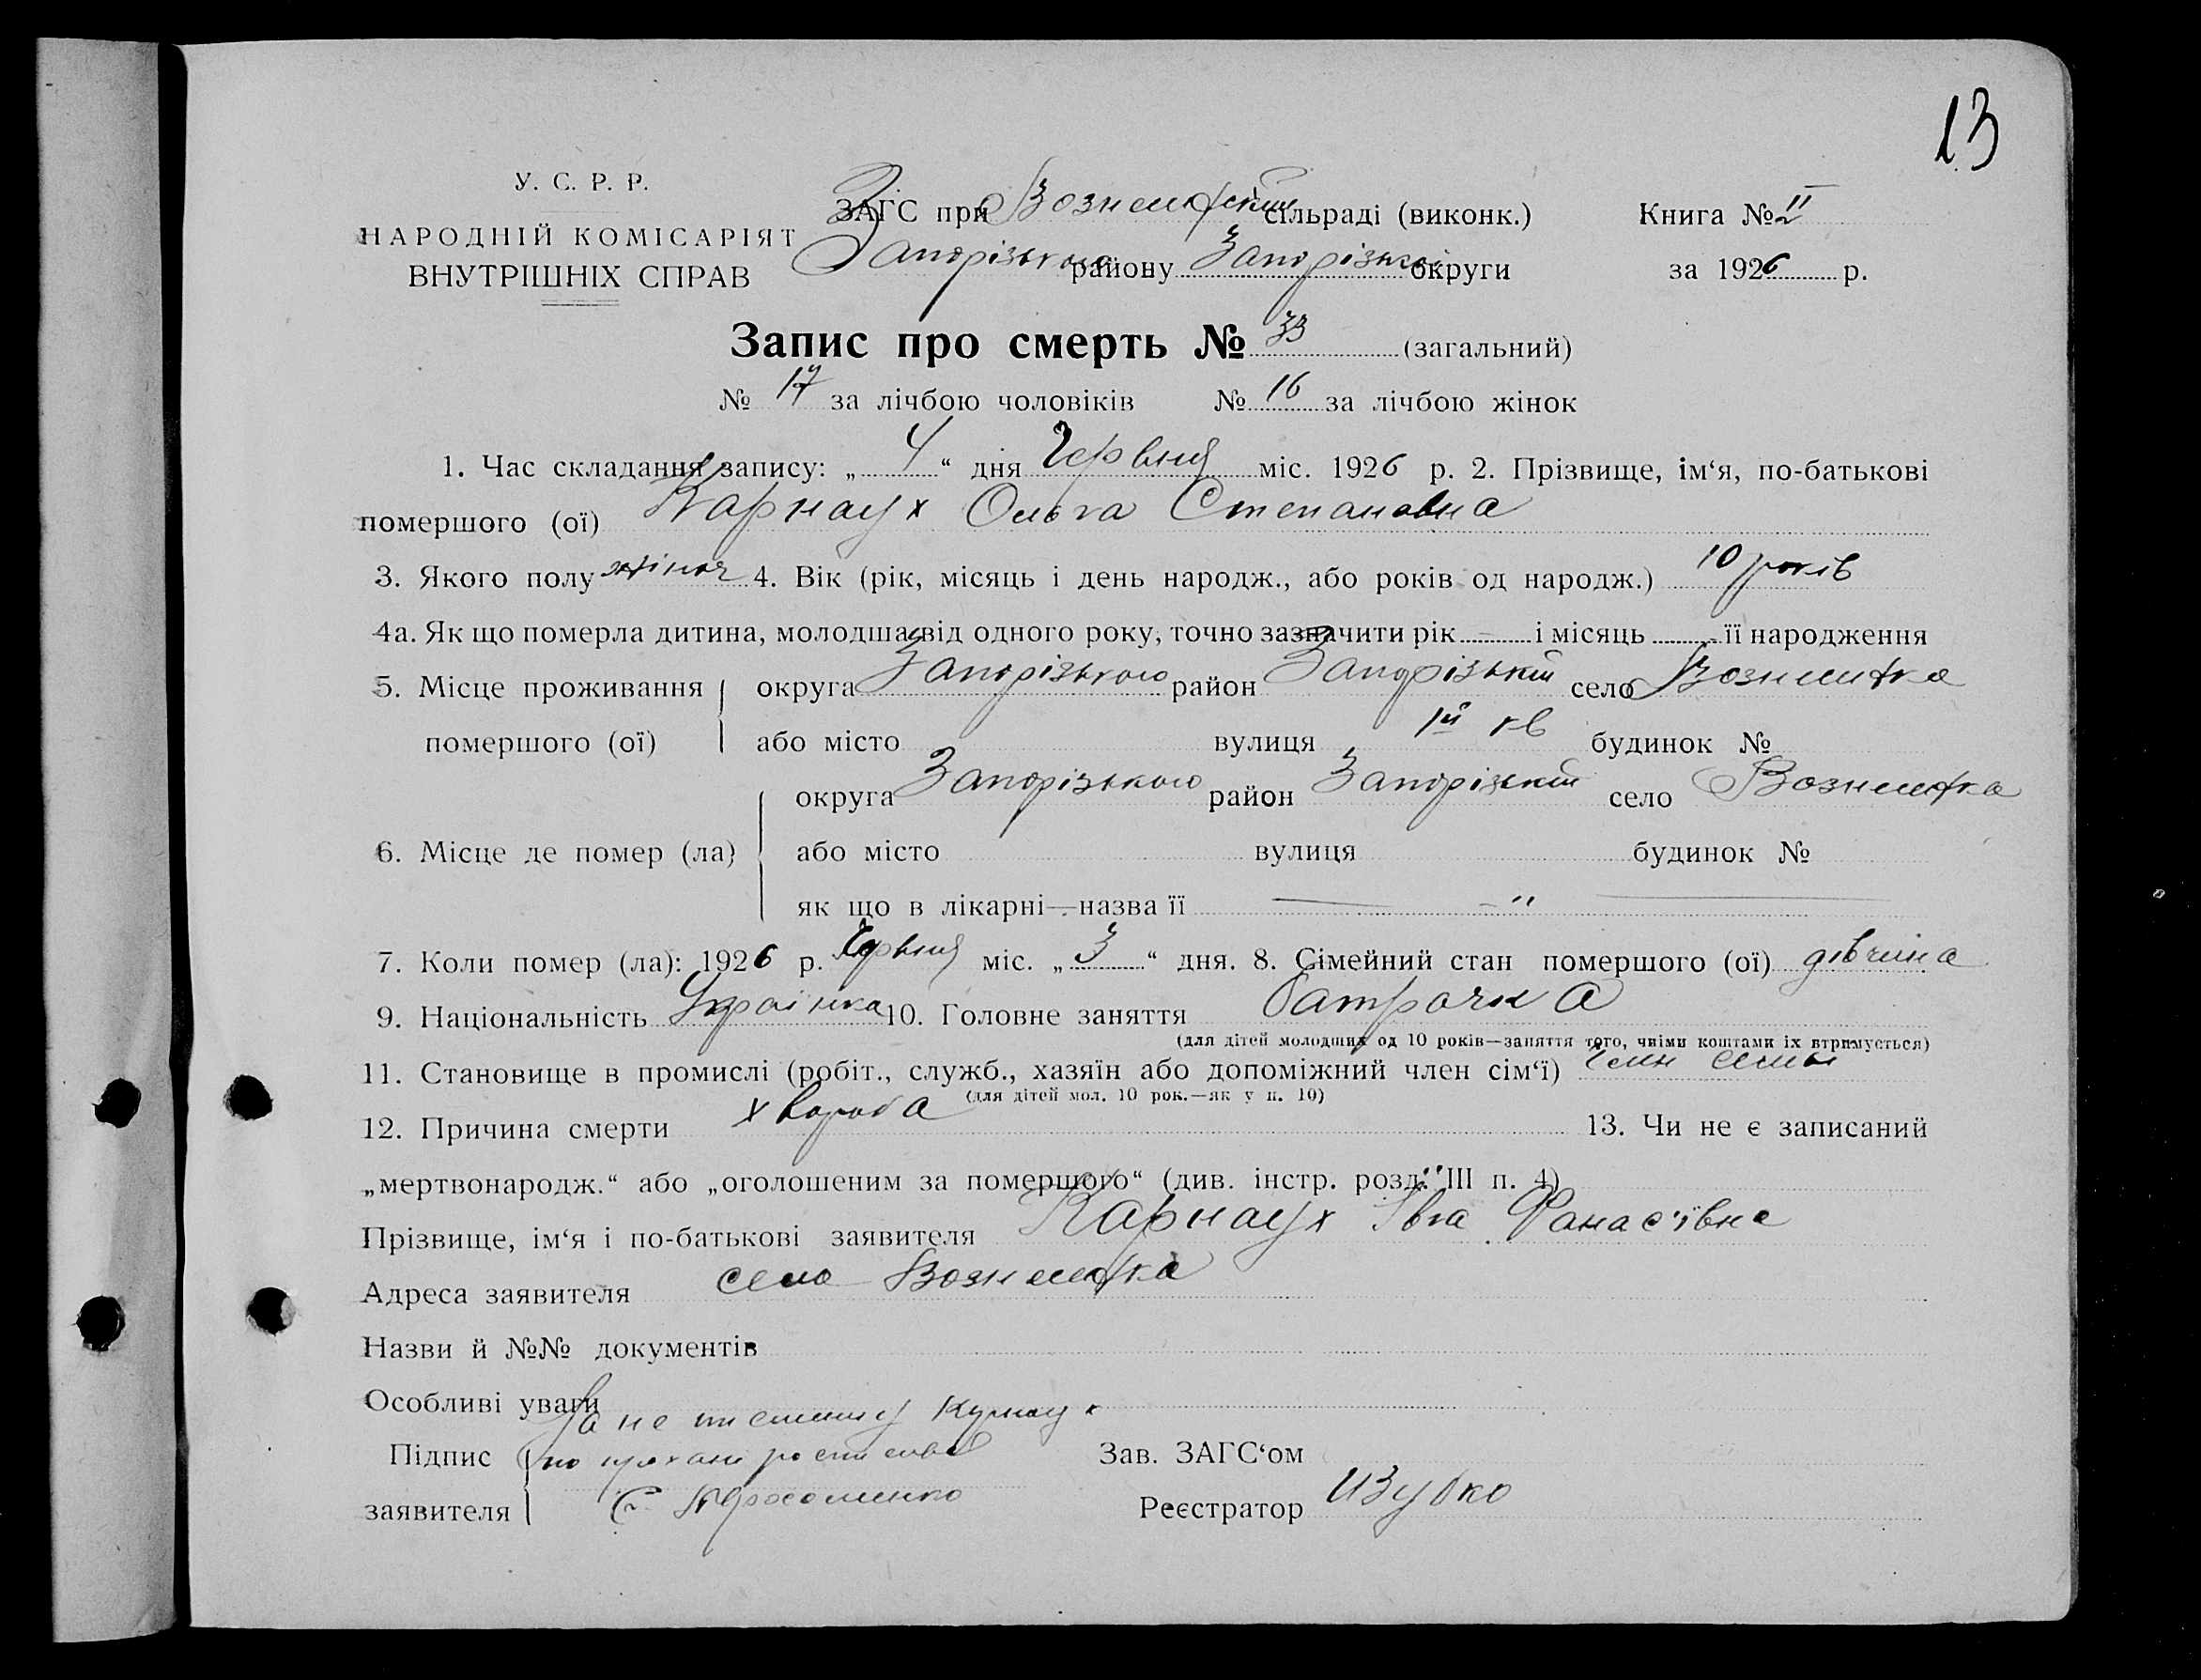 13
У. С. Р. Р.
НАРОДНІЙ КОМІСАРІЯТ
ВНУТРІШНІХ СПРАВ
ЗАГС при Вознесенській сільраді (виконк.) Книга № II
Запорізького району Запорізької округи за 1926 р.
Запис про смерть № 33 (загальний)
№ 17 за лічбою чоловіків № 16 за лічбою жінок
1. Час складання запису: „ 4 “ дня Червня міс. 1926 р. 2. Прізвище, ім‘я, по-батькові
помершого (ої) Карнаух Ольга Степановна
3. Якого полу жіноч 4. Вік (рік, місяць і день народж., або років од народж.) 10 років
4а. Як що померла дитина, молодша від одного року, точно зазначити рік - і місяць - її народження
5. Місце проживання округа Запорізького район Запорізькій село Вознесенка
помершого (ої) або місто вулиця 1й кв будинок №
округа Запорізького район Запорізькій село Вознесенка
6. Місце де помер (ла) або місто вулиця будинок №
як що в лікарні—назва її — „ —
7. Коли помер (ла): 1926 р. Червня міс. „ 3 “ дня. 8. Сімейний стан помершого (ої) дівчина
9. Національність Українка 10. Головне заняття батрачка
(для дітей молодших од 10 років—заняття того, чиїми коштами їх втримується)
11. Становище в промислі (робіт., служб., хазяїн або допоміжний член сім‘ї) член семьи
(для дітей мол. 10 рок.—як у п. 10)
12. Причина смерти хвороба 13. Чи не є записаний
„мертвонародж.“ або „оголошеним за помершого“ (див. інстр. розд. III п. 4)
Прізвище, ім‘я і по-батькові заявителя Карнаух Івга Фанас'ївна
Адреса заявителя село Вознесенка
Назви й №№ документів
Особливі уваги
За не писменну Карнаух
Підпис по прохані росписався Зав. ЗАГС‘ом
заявителя Реєстратор ИЗубко